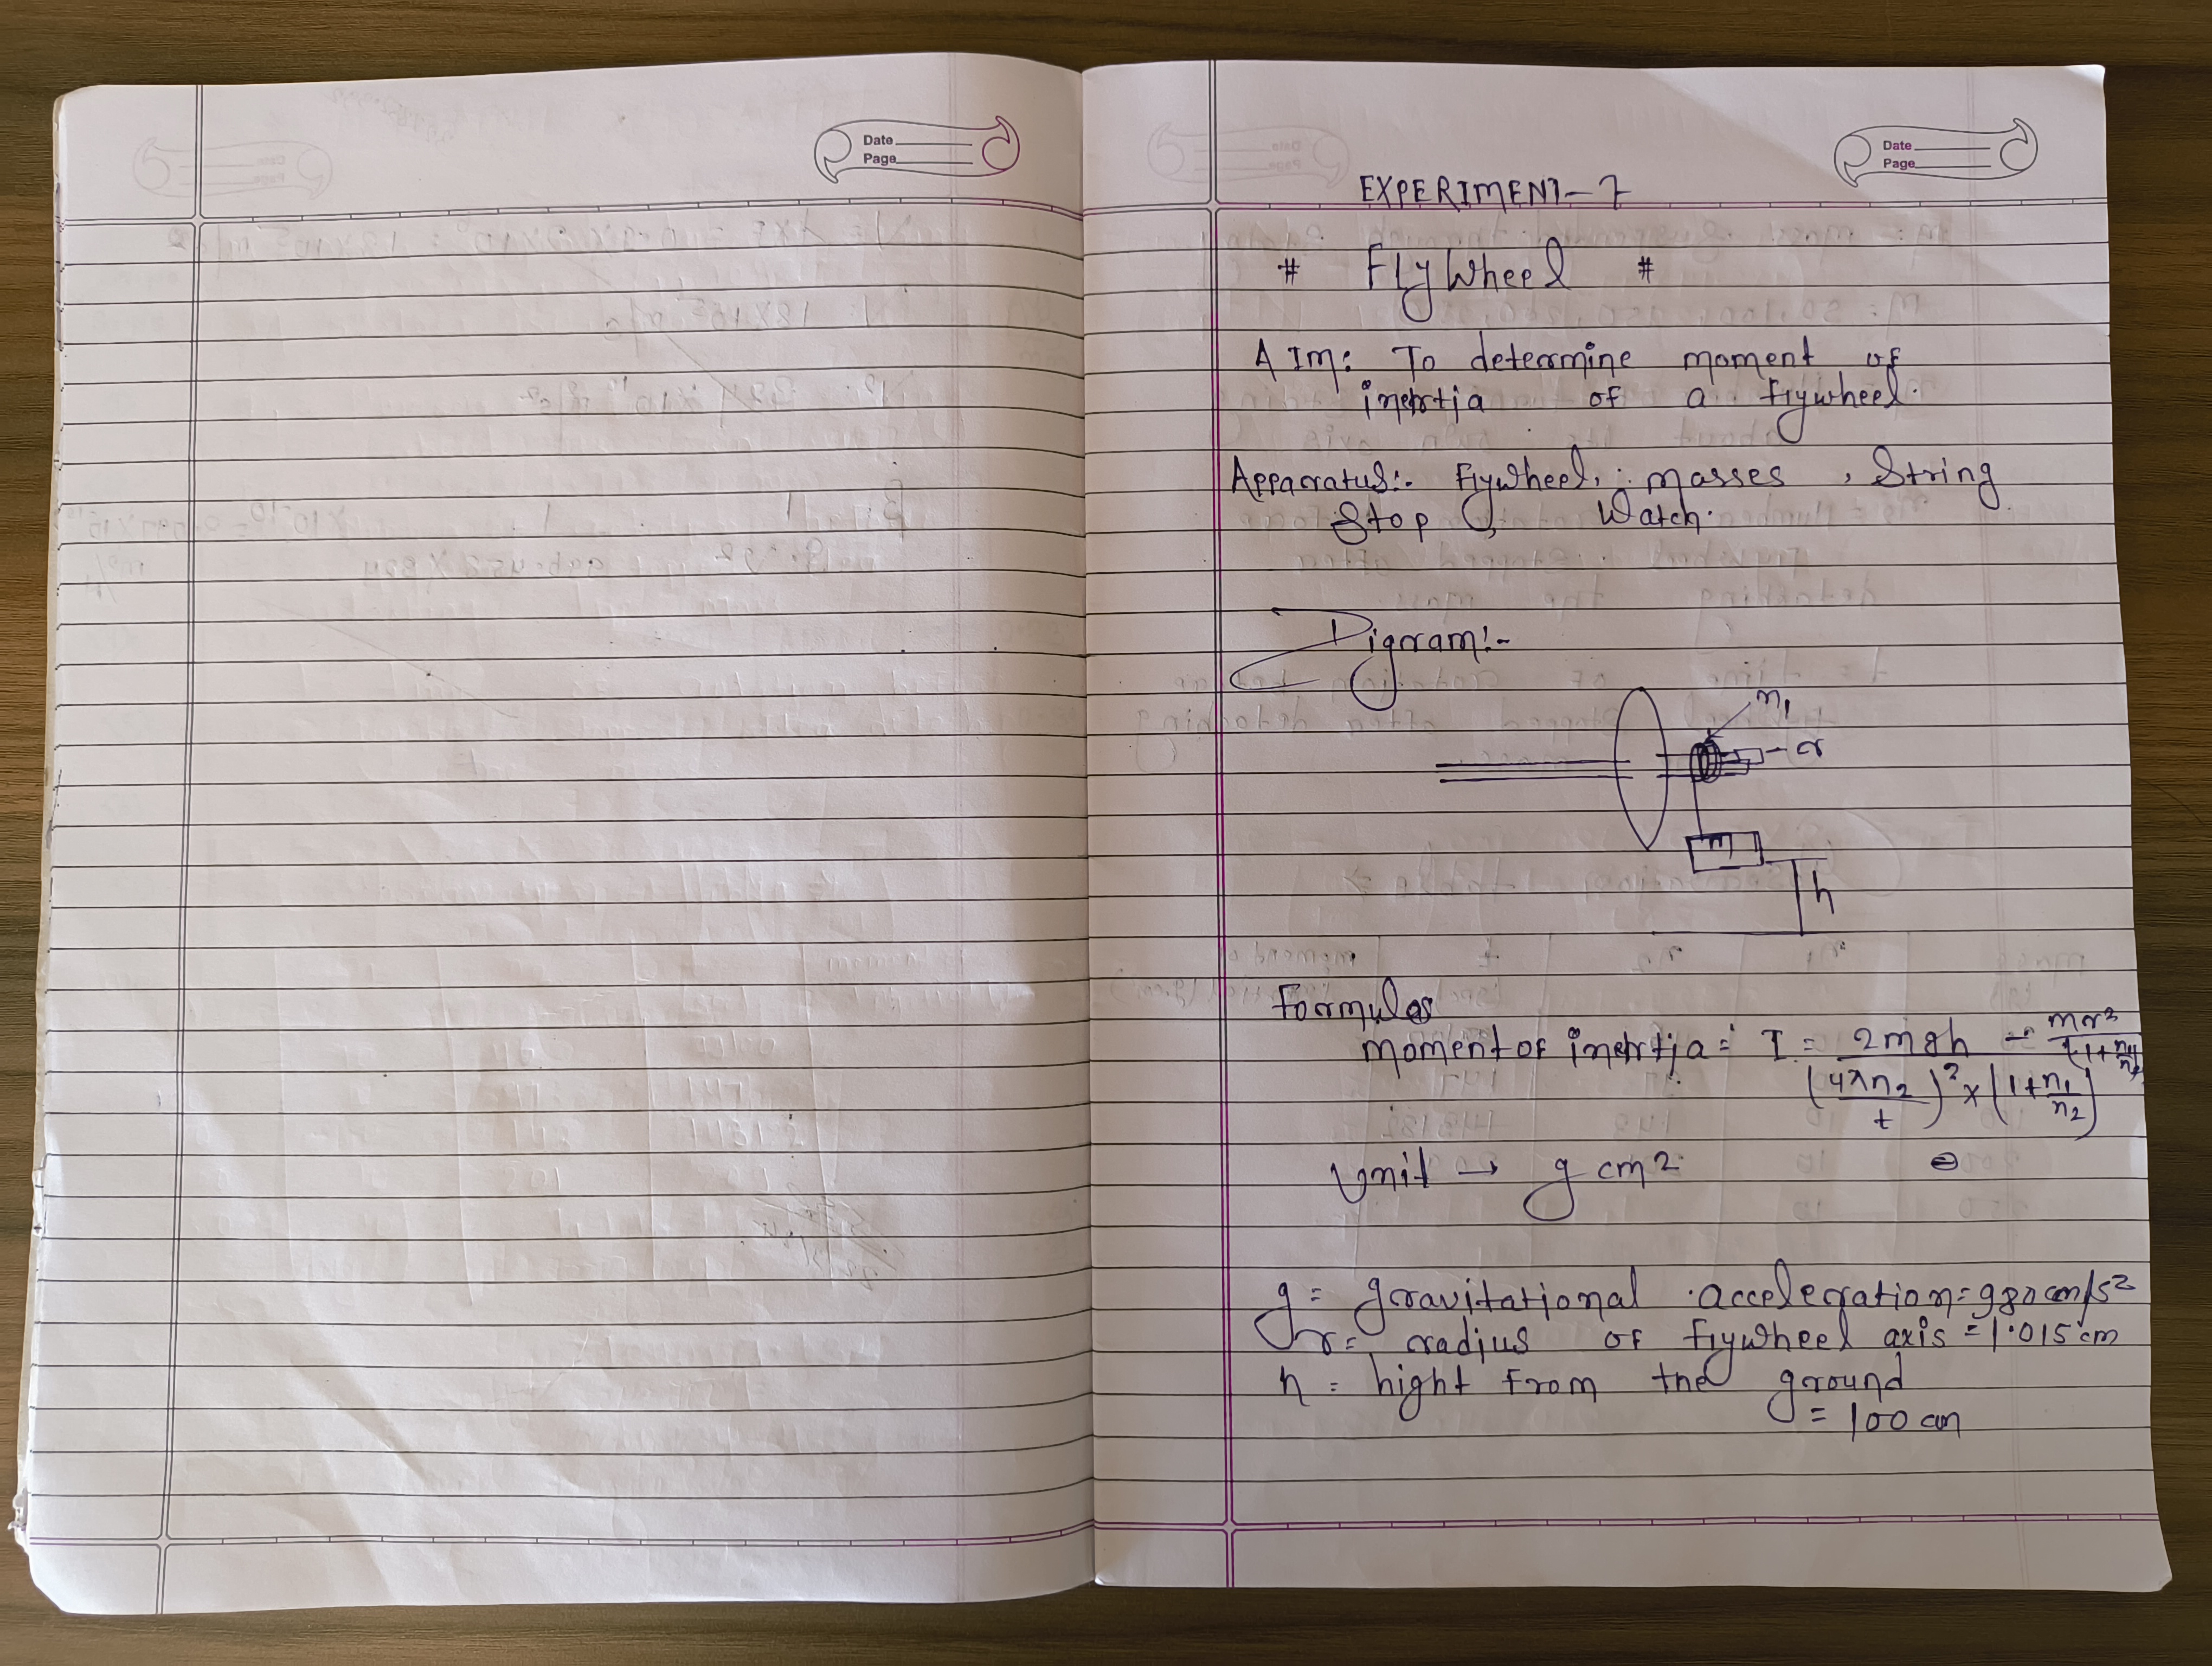 Date
Page
Date
Page
EXPERIMENT-7
# FlyWheel #
AIm: To determine moment of
inertia of a flywheel.
Apparatus:- Flywheel, masses, String
Stop Watch.
Digram:-
n1
r
m
h
Formula
moment of inertia = I = 2mgh/((4πn2/t)² × (1+n1/n2)) - mr²/(1+n1/n2)
Unit → g cm²
g = gravitational acceleration = 980 cm/s²
r = radius of flywheel axis = 1.015 cm
h = hight from the ground
= 100 cm